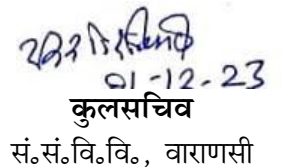 01-12-23
कुलसचिव
सं॰सं॰वि॰वि॰, वाराणसी